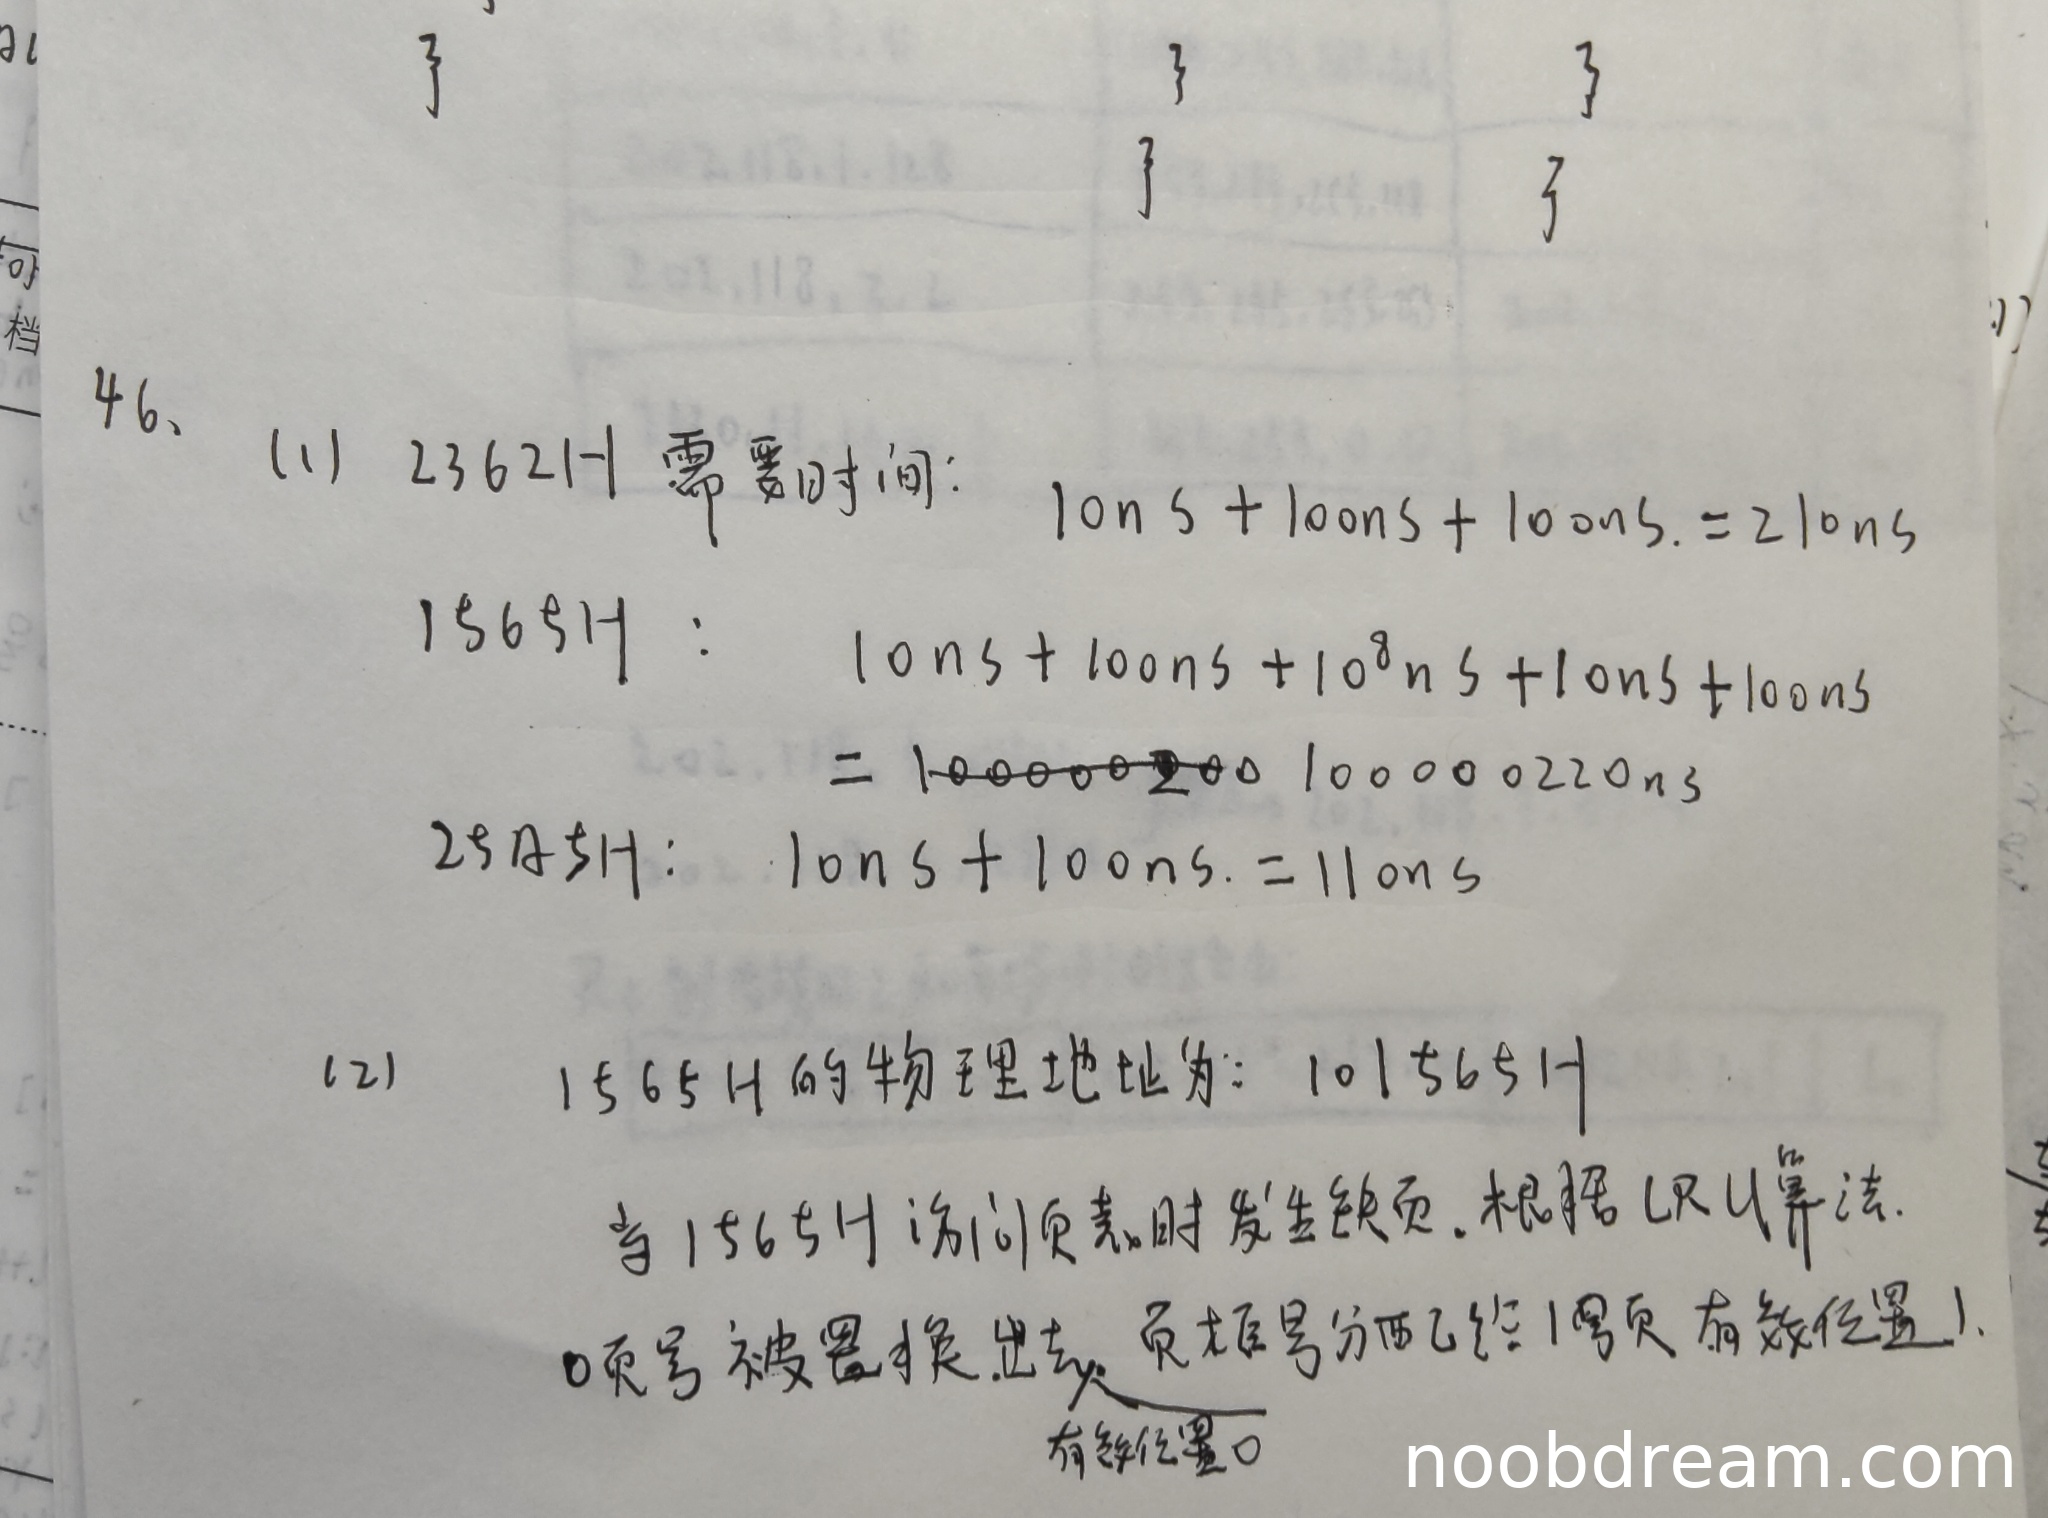 }
}
}
}
}
46、
(1) 2362H 需要时间: 10ns + 100ns + 100ns. = 210ns
1565H : 10ns + 100ns + 10⁸ns + 10ns + 100ns
= 100000220ns
25A5H: 10ns + 100ns. = 110ns
(2) 1565H的物理地址为: 101565H
当1565H访问页表时发生缺页. 根据LRU算法.
0页号被置换出去. 页框号分配给1号页 有效位置1.
有效位置0
可
档
noobdream.com